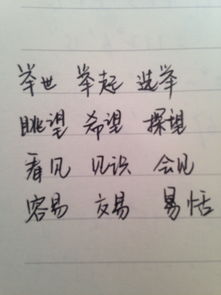 举世 举起 选举
眺望 希望 探望
看见 见识 会见
容易 交易 易恬